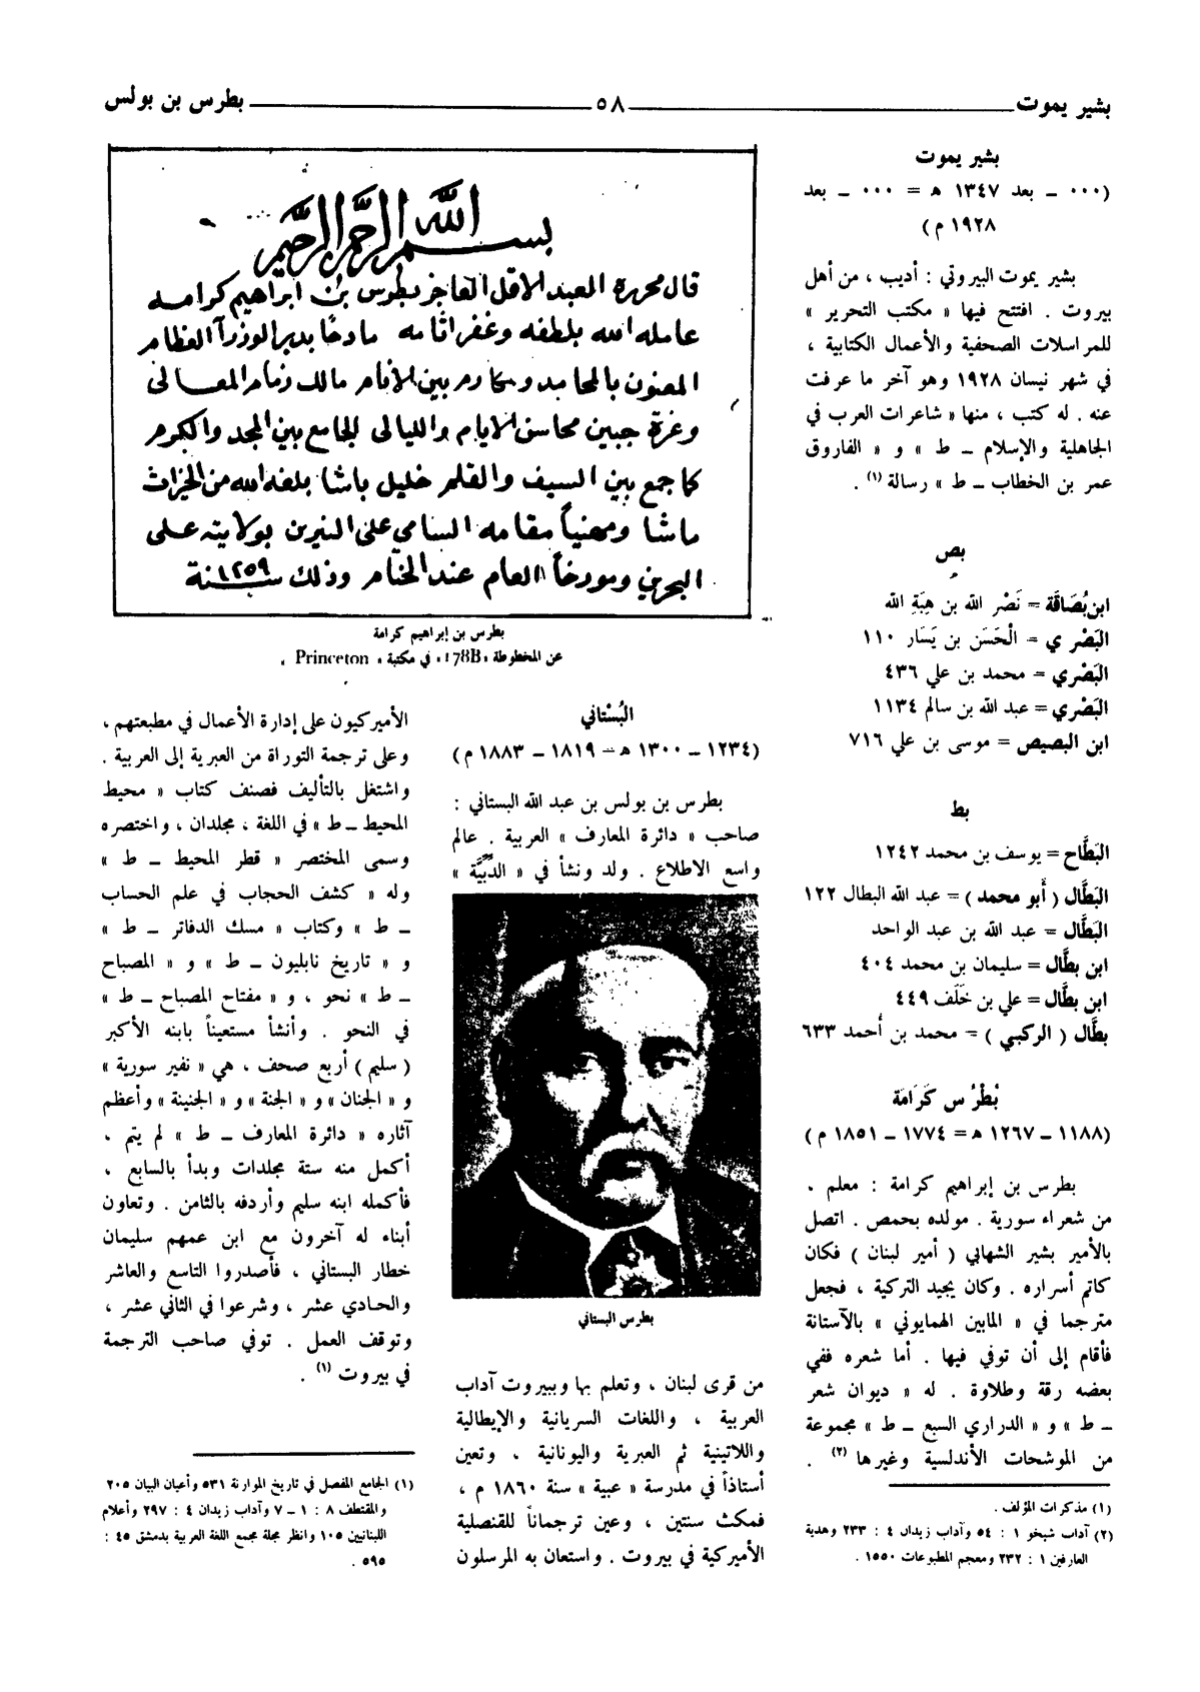 بشير يموت ــــــ ٥٨ ــــــ بطرس بن بولس
بشير يموت
(٠٠٠ ـ بعد ١٣٤٧ ه = ٠٠٠ ـ بعد
١٩٢٨ م)
بشير يموت البيروتي : أديب ، من أهل
بيروت . افتتح فيها « مكتب التحرير »
للمراسلات الصحفية والأعمال الكتابية ،
في شهر نيسان ١٩٢٨ وهو آخر ما عرفت
عنه . له كتب ، منها « شاعرات العرب في
الجاهلية والإسلام ـ ط » و « الفاروق
عمر بن الخطاب ـ ط » رسالة (١) .
بص
ابن بُصَاقَة = نَصْر الله بن هِبَةِ الله
البَصْري = الْحَسَن بن يَسَار ١١٠
البَصْري = محمد بن علي ٤٣٦
البَصْري = عبد الله بن سالم ١١٣٤
ابن البصيص = موسى بن علي ٧١٦
بط
البَطَّاح = يوسف بن محمد ١٢٤٢
البَطَّال ( أبو محمد ) = عبد الله البطال ١٢٢
البَطَّال = عبد الله بن عبد الواحد
ابن بطَّال = سليمان بن محمد ٤٠٤
ابن بطَّال = علي بن خَلَف ٤٤٩
بطَّال ( الركبي ) = محمد بن أحمد ٦٣٣
بُطْرُس كَرَامَة
(١١٨٨ ـ ١٢٦٧ ه = ١٧٧٤ ـ ١٨٥١ م)
بطرس بن إبراهيم كرامة : معلم .
من شعراء سورية . مولده بحمص . اتصل
بالأمير بشير الشهابي ( أمير لبنان ) فكان
كاتم أسراره . وكان يجيد التركية ، فجعل
مترجما في « المابين الهمايوني » بالآستانة
فأقام إلى أن توفي فيها . أما شعره ففي
بعضه رقة وطلاوة . له « ديوان شعر
ـ ط » و « الدراري السبع ـ ط » مجموعة
من الموشحات الأندلسية وغيرها (٢) .
(١) مذكرات المؤلف .
(٢) آداب شيخو ١ : ٥٤ وآداب زيدان ٤ : ٢٣٣ وهدية
العارفين ١ : ٢٣٢ ومعجم المطبوعات ١٥٥٠ .
بسم الله الرحمن الرحيم
قال محرره العبد الاقل العاجز بطرس بن ابراهيم كرامه
عامله الله بلطفه وغفر اثامه مادحًا بدر الوزرآ العظام
المعنون بالمحامد والمكارم بين الانام مالك زمام المعالى
وغرة جبين محاسن الايام والليالى الجامع بين المجد والكرم
كما جمع بين السيف والقلم خليل باشا بلغه الله من الخيرات
ماشا ومهنياً مقامه السامي على النيرين بولايته على
البحرين ومورخاً العام عند الختام وذلك سنة ١٢٥٩
بطرس بن إبراهيم كرامة
عن المخطوطة «178B» في مكتبة « Princeton »
البُسْتاني
(١٢٣٤ ـ ١٣٠٠ ه = ١٨١٩ ـ ١٨٨٣ م)
بطرس بن بولس بن عبد الله البستاني :
صاحب « دائرة المعارف » العربية . عالم
واسع الاطلاع . ولد ونشأ في « الدَّبِّيَّة »
بطرس البستاني
من قرى لبنان ، وتعلم بها وببيروت آداب
العربية ، واللغات السريانية والإيطالية
واللاتينية ثم العبرية واليونانية ، وتعين
أستاذاً في مدرسة « عبية » سنة ١٨٦٠ م ،
فمكث سنتين ، وعين ترجماناً للقنصلية
الأميركية في بيروت . واستعان به المرسلون
الأميركيون على إدارة الأعمال في مطبعتهم ،
وعلى ترجمة التوراة من العبرية إلى العربية .
واشتغل بالتأليف فصنف كتاب « محيط
المحيط ـ ط » في اللغة ، مجلدان ، واختصره
وسمى المختصر « قطر المحيط ـ ط »
وله « كشف الحجاب في علم الحساب
ـ ط » وكتاب « مسك الدفاتر ـ ط »
و « تاريخ نابليون ـ ط » و « المصباح
ـ ط » نحو ، و « مفتاح المصباح ـ ط »
في النحو . وأنشأ مستعيناً بابنه الأكبر
( سليم ) أربع صحف ، هي « نفير سورية »
و « الجنان » و « الجنة » و « الجنينة » وأعظم
آثاره « دائرة المعارف ـ ط » لم يتم ،
أكمل منه ستة مجلدات وبدأ بالسابع ،
فأكمله ابنه سليم وأردفه بالثامن . وتعاون
أبناء له آخرون مع ابن عمهم سليمان
خطار البستاني ، فأصدروا التاسع والعاشر
والحادي عشر ، وشرعوا في الثاني عشر ،
وتوقف العمل . توفي صاحب الترجمة
في بيروت (١) .
(١) الجامع المفصل في تاريخ الموارنة ٥٣١ وأعيان البيان ٢٠٥
والمقتطف ٨ : ١ ـ ٧ وآداب زيدان ٤ : ٢٩٧ وأعلام
اللبنانيين ١٠٥ وانظر مجلة مجمع اللغة العربية بدمشق ٤٥ :
٥٩٥ .